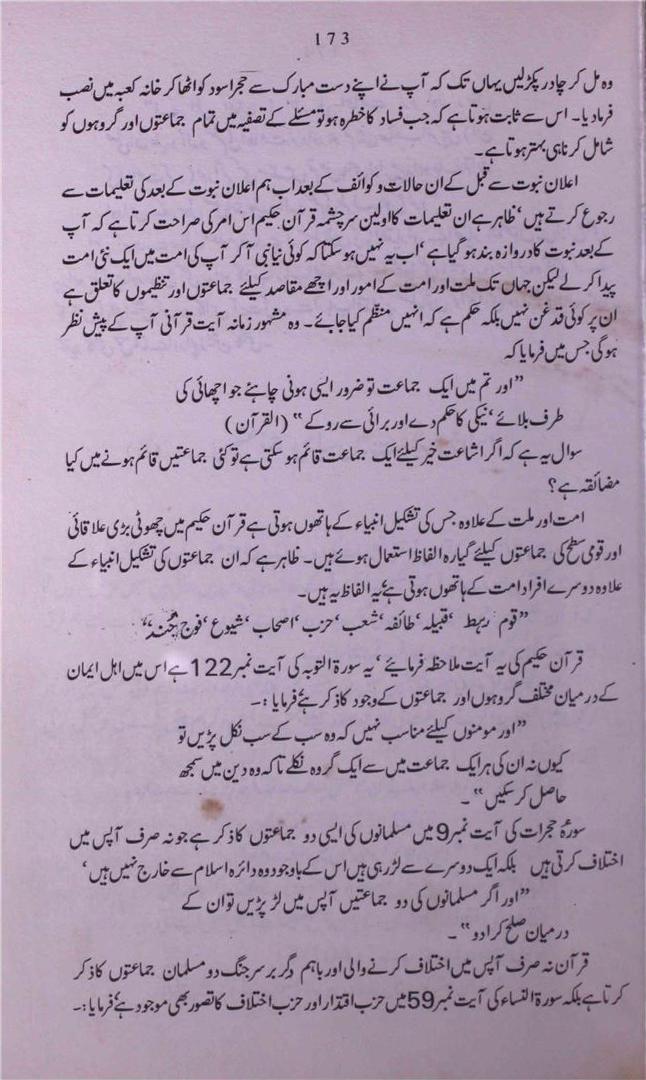 173
وہ مل کر چادر پکڑلیں یہاں تک کہ آپ نے اپنے دست مبارک سے حجراسود کواٹھا کر خانہ کعبہ میں نصب
فرمادیا۔ اس سے ثابت ہوتا ہے کہ جب فساد کا خطرہ ہوتو مسئلے کے تصفیہ میں تمام جماعتوں اور گروہوں کو
شامل کرنا ہی بہتر ہوتا ہے۔
اعلان نبوت سے قبل کے ان حالات و کوائف کے بعد اب ہم اعلان نبوت کے بعد کی تعلیمات سے
رجوع کرتے ہیں‘ ظاہر ہے ان تعلیمات کا اولین سرچشمہ قرآن حکیم اس امر کی صراحت کرتا ہے کہ آپ
کے بعد نبوت کا دروازہ بند ہوگیا ہے‘ اب یہ نہیں ہوسکتا کہ کوئی نیا نبی آکر آپ کی امت میں ایک نئی امت
پیدا کرلے لیکن جہاں تک ملت اور امت کے امور اور اچھے مقاصد کیلئے جماعتوں اور تنظیموں کا تعلق ہے
ان پر کوئی قدغن نہیں بلکہ حکم ہے کہ انہیں منظم کیا جائے۔ وہ مشہور زمانہ آیت قرآنی آپ کے پیش نظر
ہوگی جس میں فرمایا کہ
”اور تم میں ایک جماعت تو ضرور ایسی ہونی چاہئے جو اچھائی کی
طرف بلائے‘ نیکی کا حکم دے اور برائی سے روکے“ (القرآن)
سوال یہ ہے کہ اگر اشاعت خیر کیلئے ایک جماعت قائم ہوسکتی ہے تو کئی جماعتیں قائم ہونے میں کیا
مضائقہ ہے؟
امت اور ملت کے علاوہ جس کی تشکیل انبیاء کے ہاتھوں ہوتی ہے قرآن حکیم میں چھوٹی بڑی علاقائی
اور قومی سطح کی جماعتوں کیلئے گیارہ الفاظ استعمال ہوئے ہیں۔ ظاہر ہے کہ ان جماعتوں کی تشکیل انبیاء کے
علاوہ دوسرے افراد امت کے ہاتھوں ہوتی ہے‘ یہ الفاظ یہ ہیں۔
”قوم رہط ‘قبیلہ ‘طائفہ‘ شعب‘ حزب‘ اصحاب‘ شیوع‘ فوج‘ جُند“
قرآن حکیم کی یہ آیت ملاحظہ فرمائیے‘ یہ سورۃ التوبہ کی آیت نمبر122 ہے اس میں اہل ایمان
کے درمیان مختلف گروہوں اور جماعتوں کے وجود کا ذکر ہے‘ فرمایا :۔
”اور مومنوں کیلئے مناسب نہیں کہ وہ سب کے سب نکل پڑیں تو
کیوں نہ ان کی ہر ایک جماعت میں سے ایک گروہ نکلے تاکہ وہ دین میں سمجھ
حاصل کرسکیں“۔
سورۂ حجرات کی آیت نمبر9 میں مسلمانوں کی ایسی دو جماعتوں کا ذکر ہے جو نہ صرف آپس میں
اختلاف کرتی ہیں بلکہ ایک دوسرے سے لڑ رہی ہیں اس کے باوجود وہ دائرہ اسلام سے خارج نہیں ہیں‘
”اور اگر مسلمانوں کی دو جماعتیں آپس میں لڑ پڑیں تو ان کے
درمیان صلح کرادو“۔
قرآن نہ صرف آپس میں اختلاف کرنے والی اور باہم دگر برسرجنگ دو مسلمان جماعتوں کا ذکر
کرتا ہے بلکہ سورۃ النساء کی آیت نمبر59 میں حزب اقتدار اور حزب اختلاف کا تصور بھی موجود ہے‘ فرمایا :۔